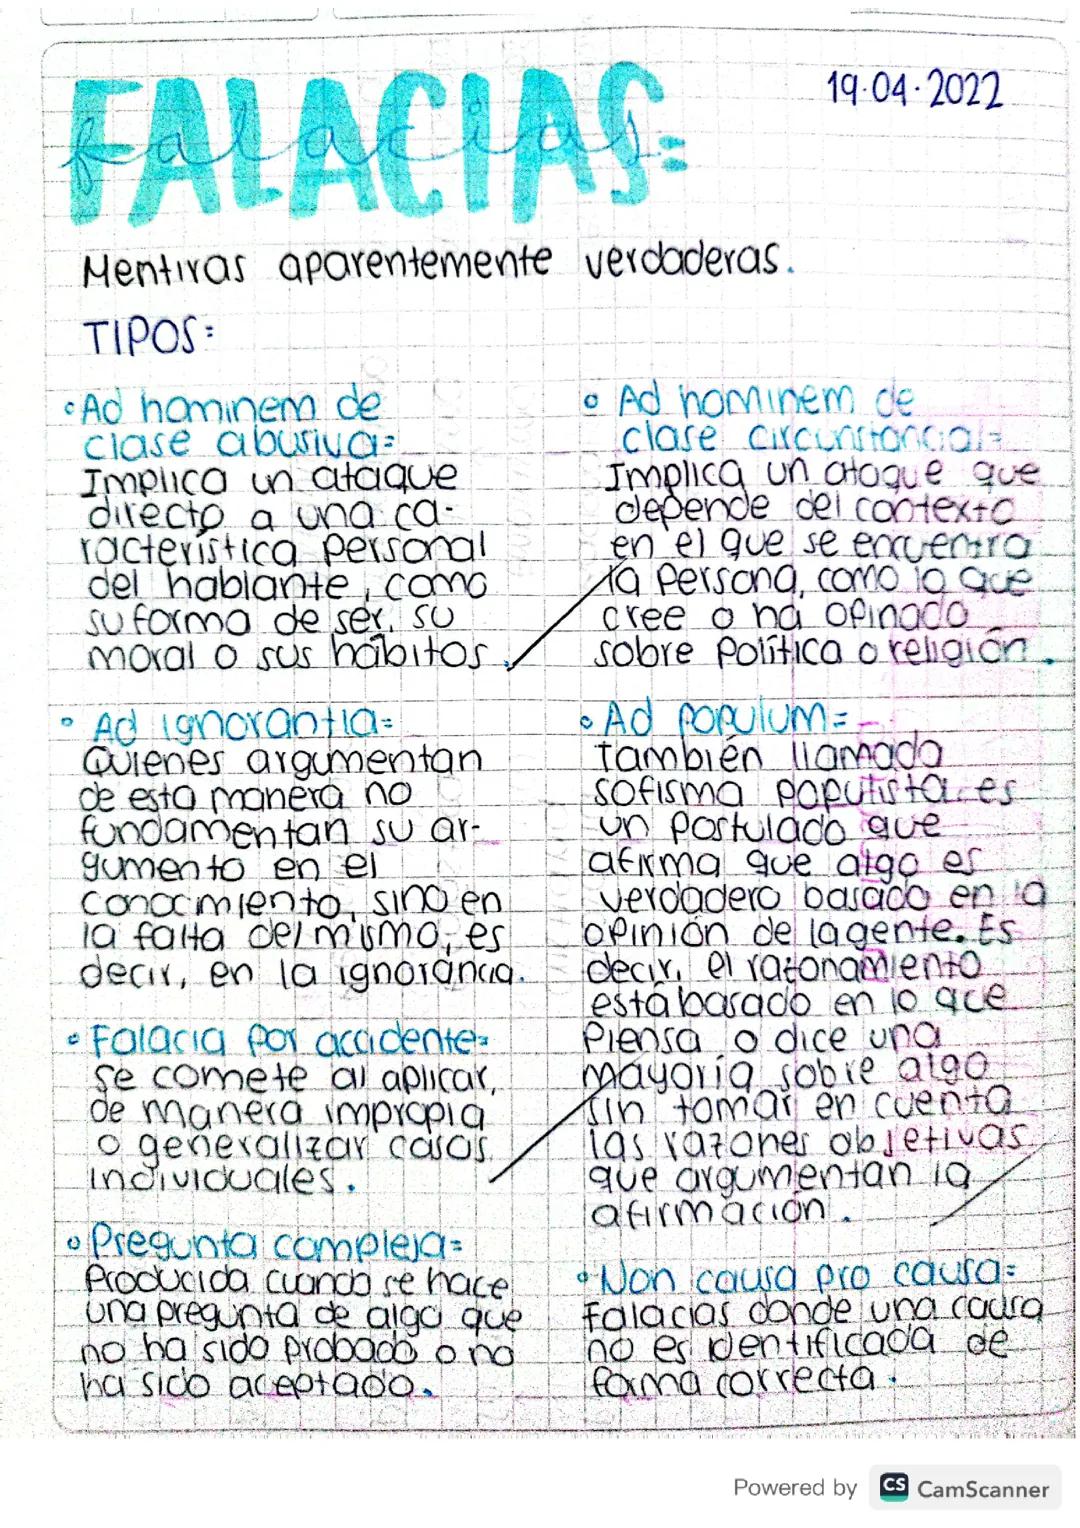 19.04.2022
FALACIAS:
falacias
Mentiras aparentemente verdaderas.
TIPOS:
Ad hominem de
clase abusiva:
Implica un ataque
directo a una ca-
racterística personal
del hablante, como
su forma de ser, su
moral o sus hábitos.
Ad hominem de
clase circunstancial:
Implica un ataque que
depende del contexto
en el que se encuentra
la persona, como lo que
cree o ha opinado
sobre política o religión.
Ad ignorantia:
Quienes argumentan
de esta manera no
fundamentan su ar-
gumento en el
conocimiento, sino en
la falta del mismo, es
decir, en la ignorancia.
Ad populum:
también llamado
sofisma populista, es
un postulado que
afirma que algo es
verdadero basado en la
opinión de la gente. Es
decir, el razonamiento
está basado en lo que
piensa o dice una
mayoría sobre algo
sin tomar en cuenta
las razones objetivas
que argumentan la
afirmación.
Falacia por accidente:
se comete al aplicar,
de manera impropia
o generalizar casos
individuales.
Pregunta compleja:
Producida cuando se hace
una pregunta de algo que
no ha sido probado o no
ha sido aceptado.
Non causa pro causa:
Falacias donde una causa
no es identificada de
forma correcta.
Powered by CS CamScanner